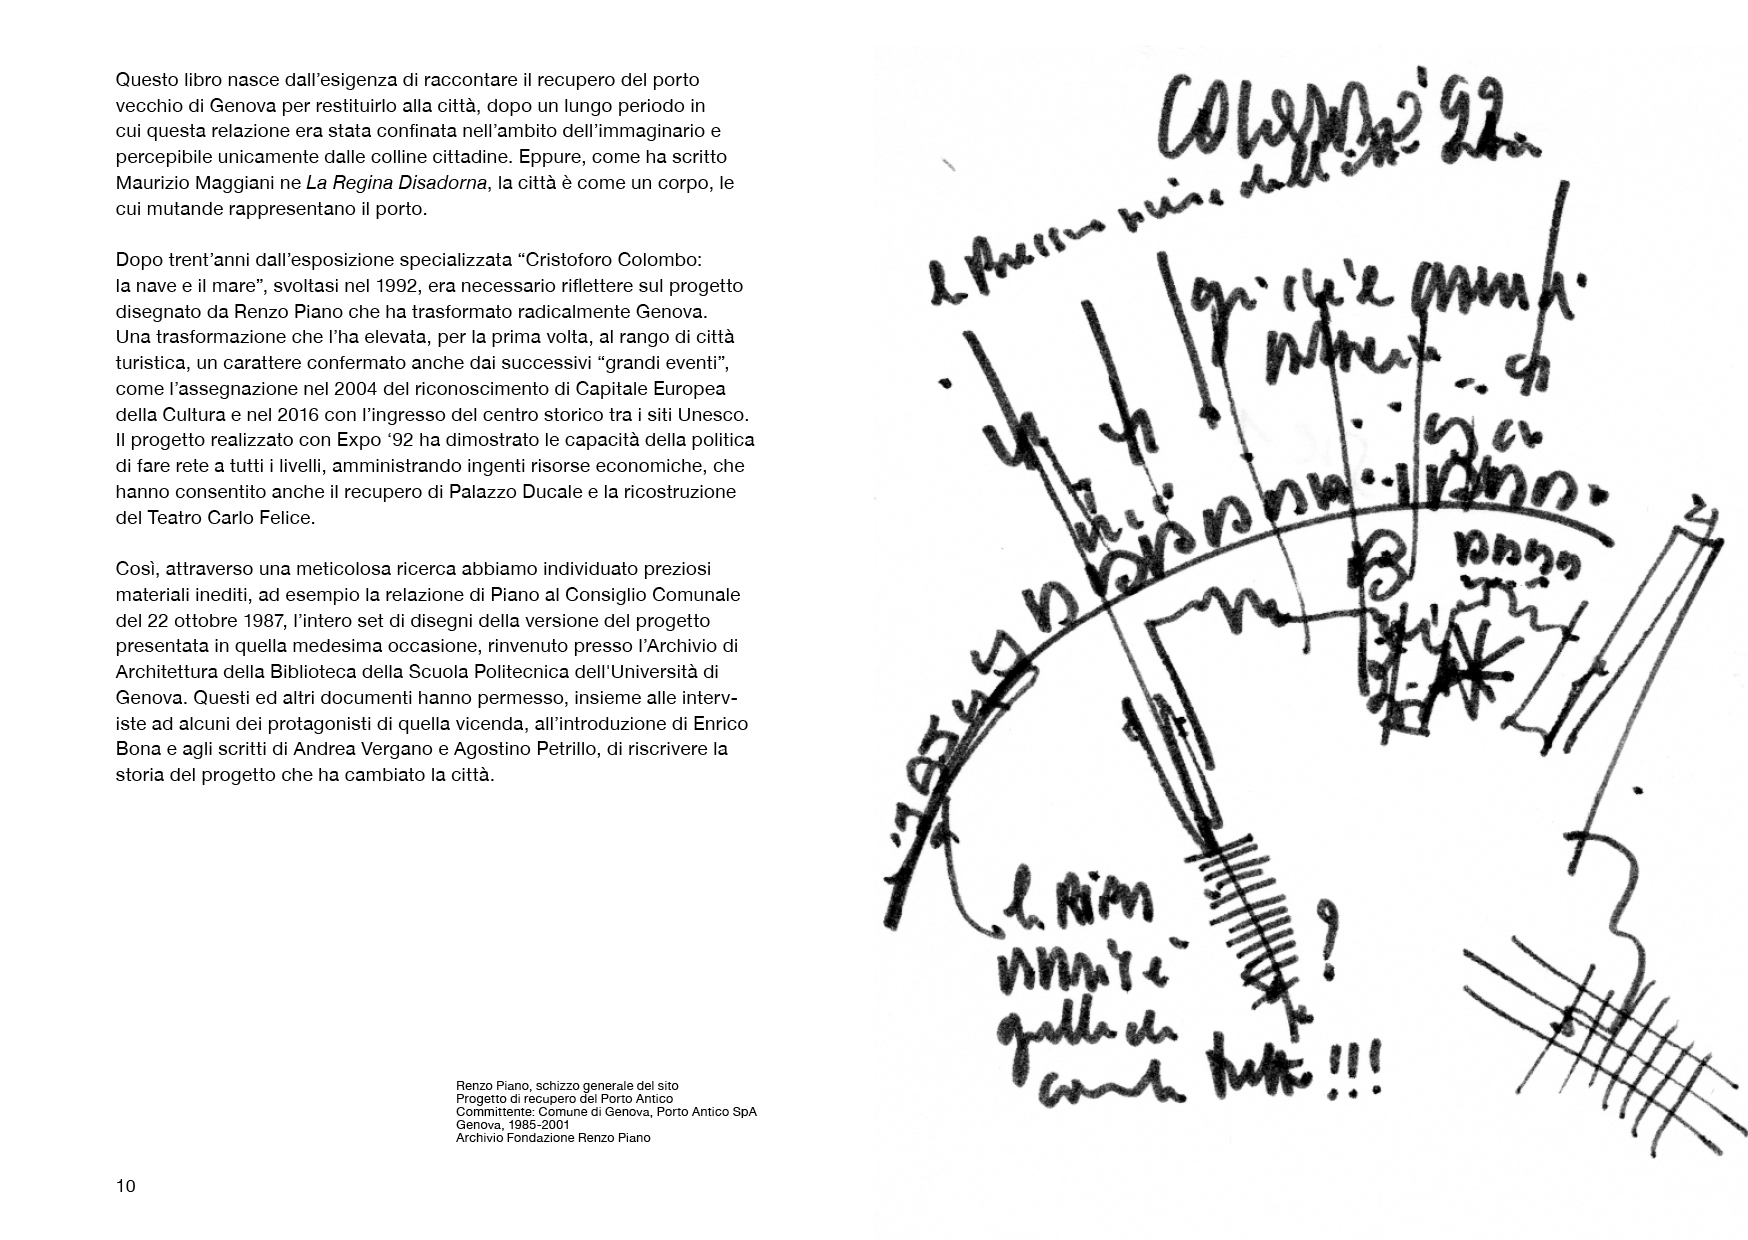 Questo libro nasce dall’esigenza di raccontare il recupero del porto
vecchio di Genova per restituirlo alla città, dopo un lungo periodo in
cui questa relazione era stata confinata nell’ambito dell’immaginario e
percepibile unicamente dalle colline cittadine. Eppure, come ha scritto
Maurizio Maggiani ne La Regina Disadorna, la città è come un corpo, le
cui mutande rappresentano il porto.
Dopo trent’anni dall’esposizione specializzata “Cristoforo Colombo:
la nave e il mare”, svoltasi nel 1992, era necessario riflettere sul progetto
disegnato da Renzo Piano che ha trasformato radicalmente Genova.
Una trasformazione che l’ha elevata, per la prima volta, al rango di città
turistica, un carattere confermato anche dai successivi “grandi eventi”,
come l’assegnazione nel 2004 del riconoscimento di Capitale Europea
della Cultura e nel 2016 con l’ingresso del centro storico tra i siti Unesco.
Il progetto realizzato con Expo ‘92 ha dimostrato le capacità della politica
di fare rete a tutti i livelli, amministrando ingenti risorse economiche, che
hanno consentito anche il recupero di Palazzo Ducale e la ricostruzione
del Teatro Carlo Felice.
Così, attraverso una meticolosa ricerca abbiamo individuato preziosi
materiali inediti, ad esempio la relazione di Piano al Consiglio Comunale
del 22 ottobre 1987, l’intero set di disegni della versione del progetto
presentata in quella medesima occasione, rinvenuto presso l’Archivio di
Architettura della Biblioteca della Scuola Politecnica dell'Università di
Genova. Questi ed altri documenti hanno permesso, insieme alle interv-
iste ad alcuni dei protagonisti di quella vicenda, all’introduzione di Enrico
Bona e agli scritti di Andrea Vergano e Agostino Petrillo, di riscrivere la
storia del progetto che ha cambiato la città.
Renzo Piano, schizzo generale del sito
Progetto di recupero del Porto Antico
Committente: Comune di Genova, Porto Antico SpA
Genova, 1985-2001
Archivio Fondazione Renzo Piano
10
COLOMBO '92
la pressione viene dall'
qui c'è
?
quella di
tutti !!!